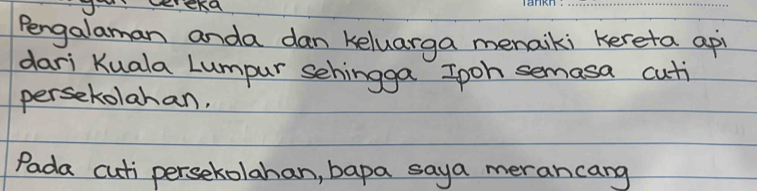 Tarikh :
Pengalaman anda dan keluarga menaiki kereta api
dari Kuala Lumpur sehingga Ipoh semasa cuti
persekolahan.
Pada cuti persekolahan, bapa saya merancang